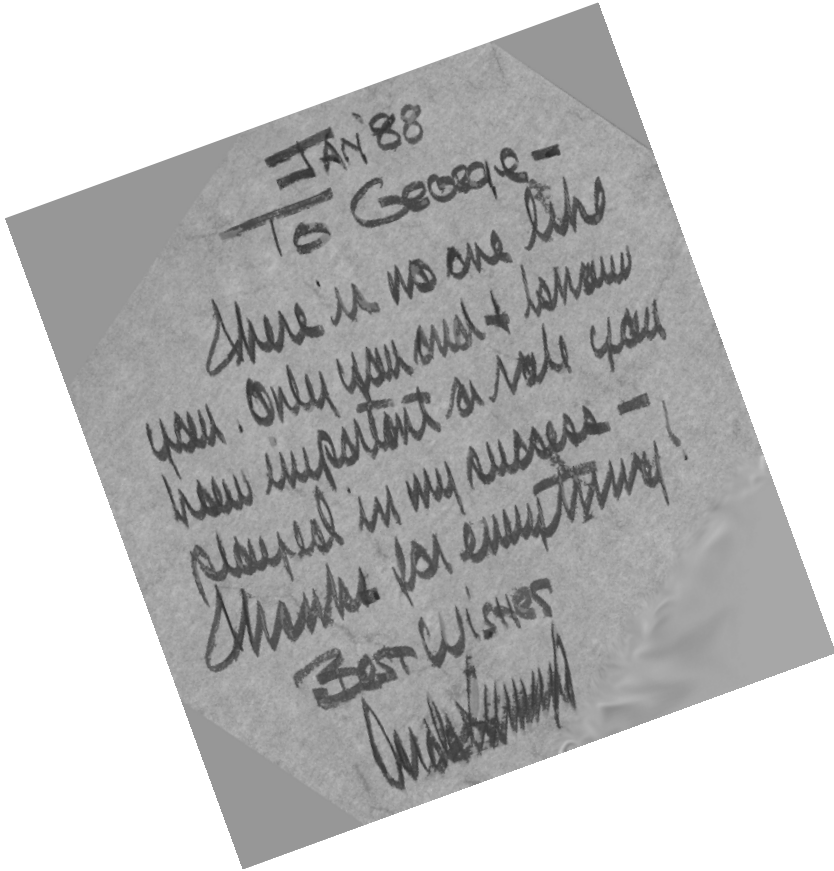 JAN '88
To George –
There is no one like
you. Only you and I know
how important a role you
played in my success –
Thanks for everything!
Best Wishes
Donald Trump